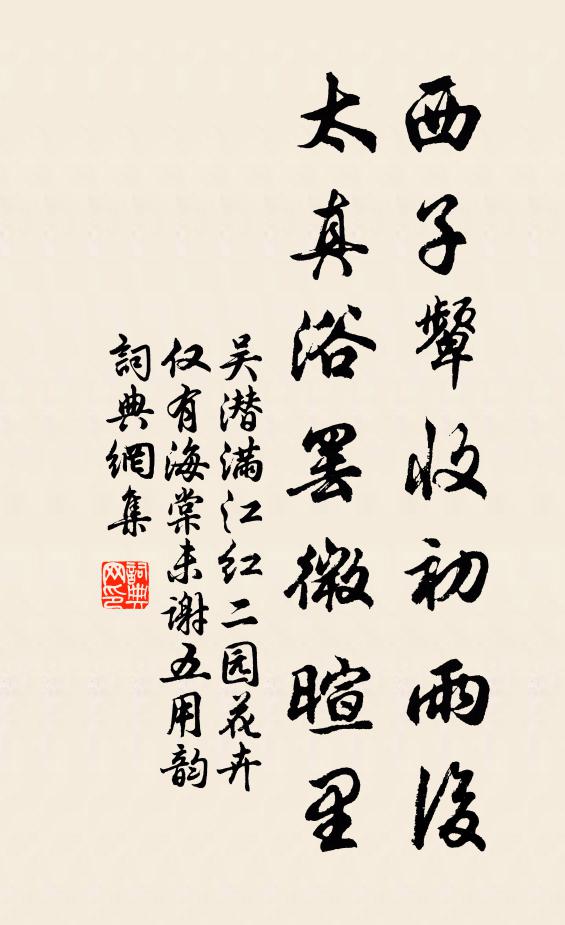 西子颦收初雨後
太真浴罢微暄里
吴潜满江红二园花卉
仅有海棠未谢五用韵
詞典網集
詞典
网印